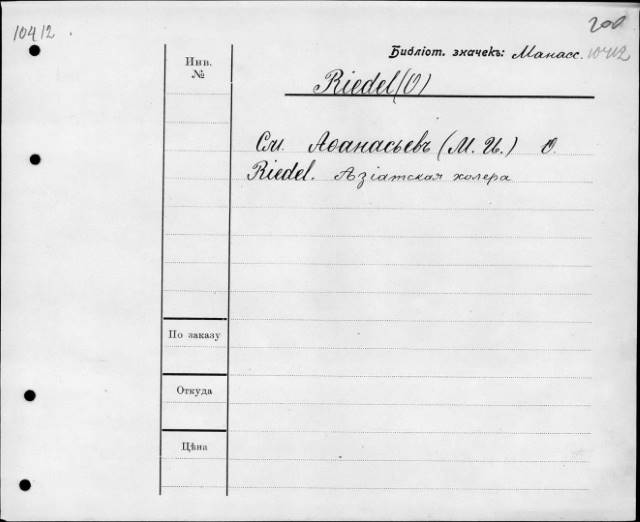 10412.
200
Библіот. значекъ: Манасс. 10412
Инв.
№
Riedel (O)
См. Аѳанасьевъ (М. И.) O.
Riedel. Азіатская холера
По заказу
Откуда
Цѣна